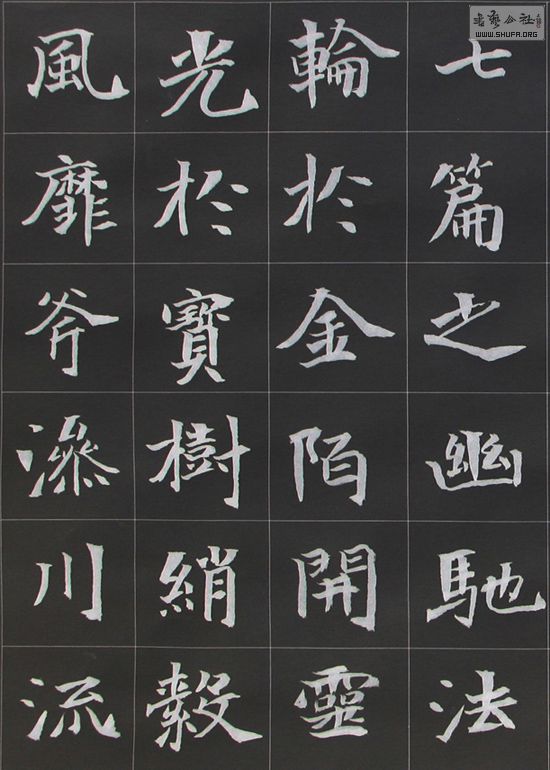 七篇之幽馳法
輪於金陌開靈
光於寶樹綃縠
風靡斧漛川流
WWW.SHUFA.ORG